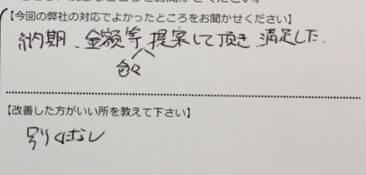 【今回の弊社の対応でよかったところをお聞かせください】
納期、金額等 色々 提案して頂き 満足した.
【改善した方がいい所を教えて下さい】
別になし